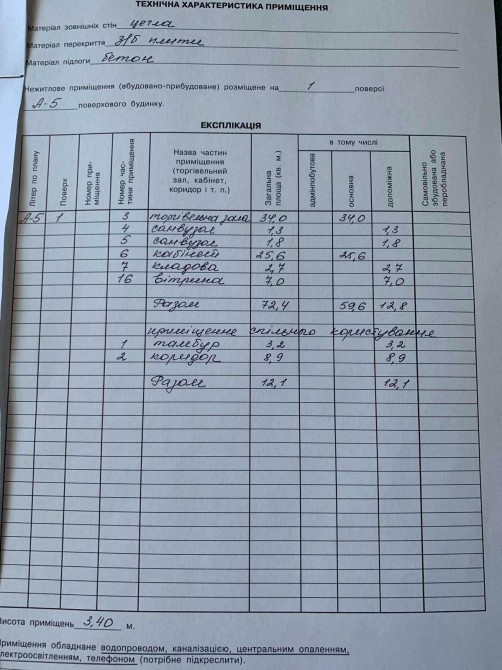 ТЕХНІЧНА ХАРАКТЕРИСТИКА ПРИМІЩЕННЯ
Матеріал зовнішніх стін цегла
Матеріал перекриття з/б плити
Матеріал підлоги бетон
Нежитлове приміщення (вбудовано-прибудоване) розміщене на 1 поверсі
А-5 поверхового будинку.
ЕКСПЛІКАЦІЯ
Літер по плану
Поверх
Номер приміщення
Номер частини приміщення
Назва частин приміщення (торгівельний зал, кабінет, коридор і т. п.)
Загальна площа (кв. м.)
в тому числі
адмінпобутова
основна
допоміжна
Самовільно збудована або переобладнана
А-5 1 3 торгівельна зала 34,0 34,0
4 санвузол 1,3 1,3
5 санвузол 1,8 1,8
6 кабінет 25,6 25,6
7 кладова 2,7 2,7
16 вітрина 7,0 7,0
Разом 72,4 59,6 12,8
приміщення спільного користування
1 тамбур 3,2 3,2
2 коридор 8,9 8,9
Разом 12,1 12,1
Висота приміщень 3,40 м.
Приміщення обладнане водопроводом, каналізацією, центральним опаленням,
електроосвітленням, телефоном (потрібне підкреслити).